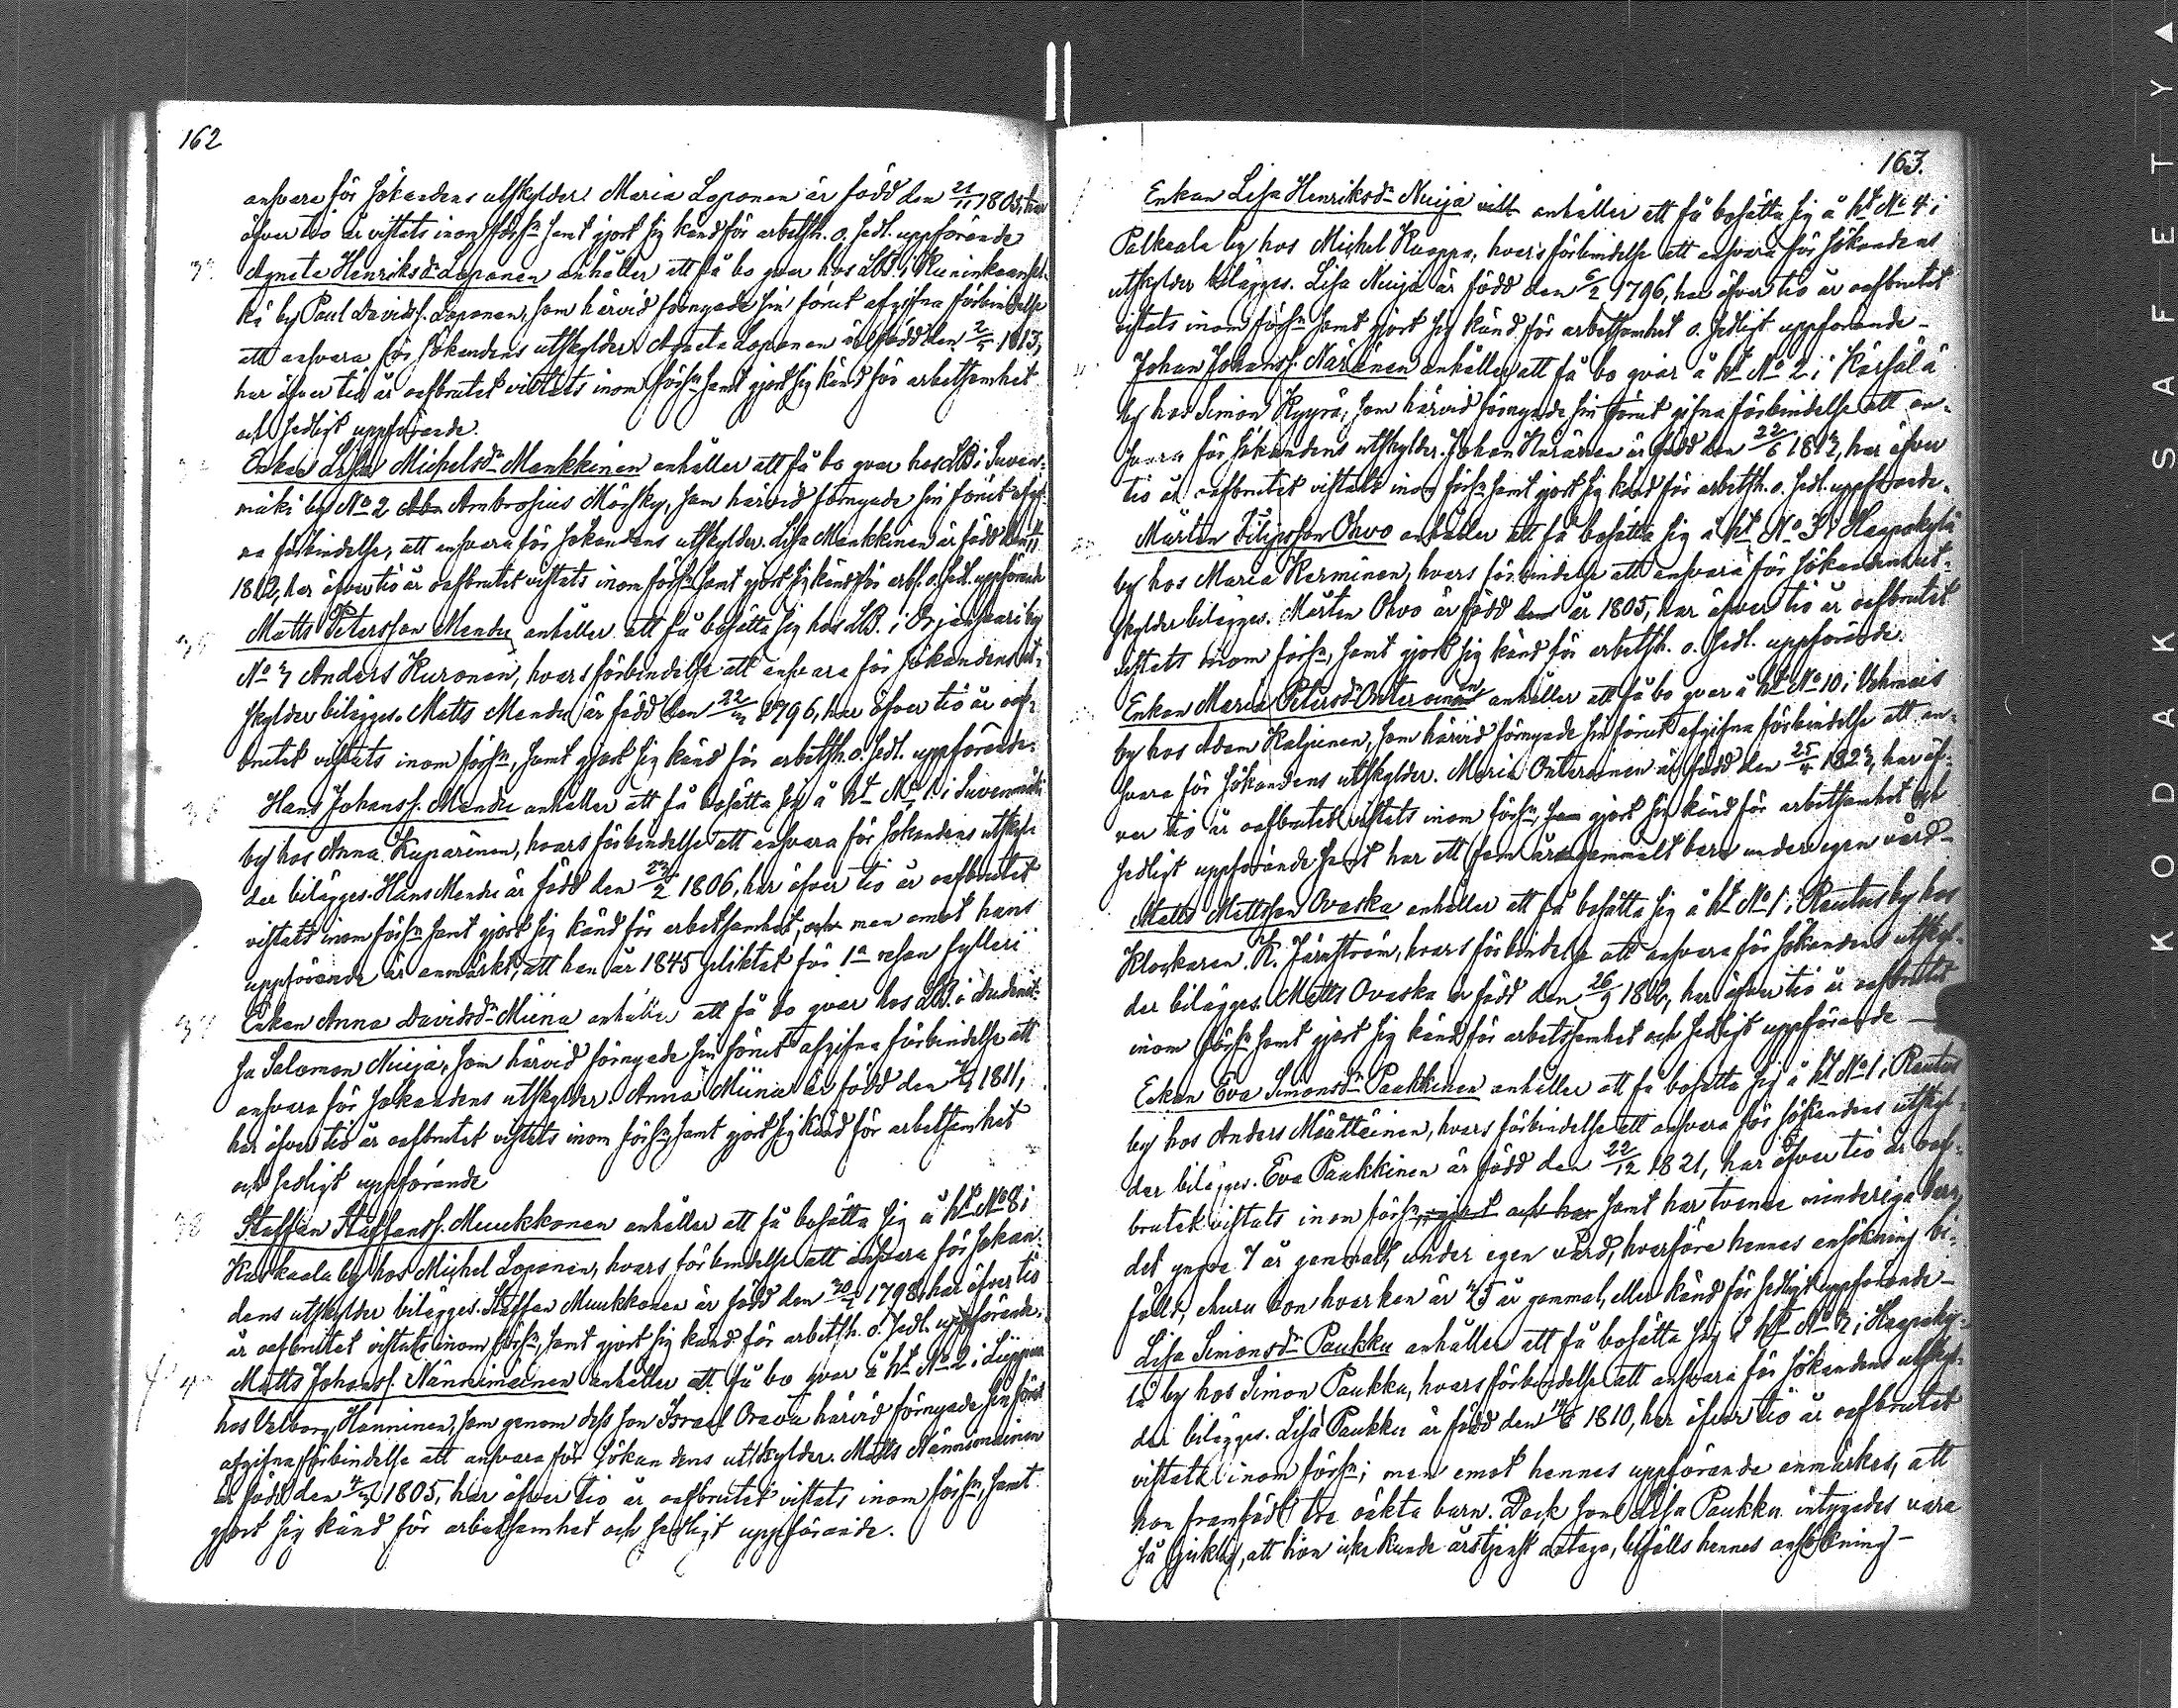 162
ansvara för sökandens utskylder. Maria Loponen är född den 21/11 1805, har
öfver tio år vistats inom förs:n samt gjort sig känd för arbetsh. o. sedl. uppförande
Agneta Henriksd:r Loponen anhåller att få bo qvar hos LB. i
ki by Paul Davidss. Loponen, som härvid förnyade sin förut afgifna förbindelse
att ansvara för sökandens utskylder. Agneta Loponen är född den 1813,
har öfver tio år oafbrutet vistats inom förs:n samt gjort sig känd för arbetsamhet
och sedligt uppförande.
Enkan Lisa Michelsd:r Mankkinen anhåller att få bo qvar hos LB i Suven-
mäki by No 2 Ambrosius Mösky, som härvid förnyade sin förut afgif-
na förbindelse, att ansvara för sökandens utskylder. Lisa Mankkinen är född
1812, har öfver tio år oafbrutet vistats inom förs:n samt gjort sig känd för arbs. o. sedl. uppförande
Matts Petersson Mendu anhåller att få bosätta sig hos LB. i by
No 3 Anders Kuronen, hvars förbindelse att ansvara för sökandens ut-
skylder bilägges. Matts Mendu är född den 22/3 1796, har öfver tio år oaf-
brutet vistats inom förs:n, samt gjort sig känd för arbetsh. o. sedl. uppförande.
Hans Johanss. Mendu anhåller att få bosätta sig å ht No 1 i Suvenmäki
by hos Anna Kuparinen, hvars förbindelse att ansvara för sökandens utskyl-
der bilägges. Hans Mendu är född den 1806, har öfver tio år oafbrutet
vistats inom förs:n samt gjort sig känd för arbetsamhet, och men emot hans
uppförande är anmärkt, att han år 1845 pliktat för 1:a resan fylleri
37 Enkan Anna Davidsd:r Miina anhåller att få bo qvar hos LB. i
sa Salomon Nuija, som härvid förnyade sin förut afgifna förbindelse att
ansvara för sökandens utskylder. Anna Miina är född den 1811,
har öfver tio år oafbrutet vistats inom förs:n, samt gjort sig känd för arbetsamhet
och sedligt uppförande
38 Staffan Staffanss. Muukkonen anhåller att få bosätta sig å ht No 8 i
Kuskaala by hos Michel Loponen, hvars förbindelse att ansvara för sökan-
dens utskylder bilägges. Staffan Muukkonen är född den 1798, har öfver tio
år oafbrutet vistats inom förs:n, samt gjort sig känd för arbetsh. o. sedl. uppförande.
Matts Johanss. Nännimäinen anhåller att få bo qvar å ht No 2 i
hos Valborg Hänninen, som genom dess son Israel Orava härvid förnyade sin förut
afgifna förbindelse att ansvara för sökandens utskylder. Matts Nännimäinen
är född den 1805, har öfver tio år oafbrutet vistats inom förs:n, samt
gjort sig känd för arbetsamhet och sedligt uppförande.
163.
Enkan Lisa Henriksd:r Nuija vill anhåller att få bosätta sig å ht No 4 i
Palkeala by hos Michel Kaappa, hvars förbindelse att ansvara för sökandens
utskylder bilägges. Lisa Nuija är född den 6/2 1796, har öfver tio år oafbrutet
vistats inom förs:n samt gjort sig känd för arbetsamhet o. sedligt uppförande –
Johan Johanss. Närönen anhåller att få bo qvar å ht No 2 i Kärsälä
by hos Simon Kyyrä, som härvid förnyade sin förut gifna förbindelse att an-
svara för sökandens utskylder. Johan är född den 22/6 1813, har öfver
tio år oafbrutet vistats inom förs:n samt gjort sig känd för arbetsh. o. sedl. uppförande.
Mårten Filipsson Ohvo anhåller att få bosätta sig å ht No 3 i Haapakylä
by hos Maria Karminen, hvars förbindelse att ansvara för sökandens ut-
skylder bilägges. Mårten Ohvo är född den år 1805, har öfver tio år oafbrutet
vistats inom förs:n, samt gjort sig känd för arbetsh. o. sedl. uppförande.
Enkan Maria Petersd:r Onterainen anhåller att få bo qvar å ht No 10 i Vehmais
by hos Adam Kaljunen, som härvid förnyade sin förut afgifna förbindelse att an-
svara för sökandens utskylder. Maria Onterainen är född den 25/4 1823, har öf-
ver tio år oafbrutet vistats inom förs:n, sam gjort sig känd för arbetsamhet och
sedligt uppförande samt har ett fem års gammalt barn under egen vård –
Matts Mattsson Ovaska anhåller att få bosätta sig å ht No 1 i Rautus by hos
Klockaren K. Järnström, hvars förbindelse att ansvara för sökandens utskyl-
der bilägges. Matts Ovaska är född den 26/9 1812, har öfver tio år oafbrutet
inom förs:n samt gjort sig känd för arbetsamhet och sedligt uppförande —
Enkan Eva Simonsd:r Paukkinen anhåller att få bosätta sig å ht No 1 i Rautus
by hos Anders Määttäinen, hvars förbindelse att ansvara för sökandens utskyl-
der bilägges. Eva Paukkinen är född den 22/12 1821, har öfver tio år oaf-
brutet vistats inom förs:n, gjort och har samt har tvenne minderiga barn,
det yngre 7 år gammalt, under egen vård, hvarföre hennes ansökning bi-
fälls, ehuru hon hvarken är 25 år gammal, eller känd för sedligt uppförande –
Lisa Simonsd:r Paukku anhåller att få bosätta sig å ht No 2 i Haapaky-
lä by hos Simon Paukku, hvars förbindelse att ansvara för sökandens utskyl-
der bilägges. Lisa Paukku är född den 14/6 1810, har öfver tio år oafbrutet
vistats inom förs:n; men emot hennes uppförande anmärkes, att
hon framfödt tre oäkta barn. Dock som Lisa Paukku intygades vara
så sjuklig, att hon icke kunde årstjenst antaga, bifälls hennes ansökning –
KODAK SAFETY